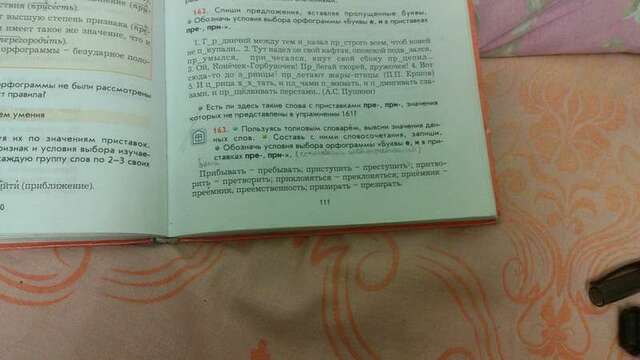 ствия (присесть).
высшую степень признака (пре-
имеет такое же значение, что и
перегородить).
орфограммы — безударное поло-
орфограммы не были рассмотрены
ст правила?
ем умения
уя их по значениям приставок.
ризнак и условия выбора изучае-
каждую группу слов по 2–3 своих
йти (приближение).
0
162. Спиши предложения, вставляя пропущенные буквы.
Обозначь условия выбора орфограммы «Буквы е, и в приставках
пре-, при-».
1. Г_р_дничий между тем н_казал пр_строго всем, чтоб коней
не п_купали... 2. Тут надел он свой кафтан, опояской подв_зался,
пр_умылся, пр_чесался, кнут свой сбоку пр_цепил...
3. Ой, Конёчек-Горбуночек! Пр_бегай скорей, дружочек! 4. Вот
сюда-то до з_рницы! пр_летают жары-птицы (П.П. Ершов)
5. И ц_рица х_х_тать, и пл_чами п_жимать, и п_дмигивать гла-
зами, и пр_щёлкивать перстами.. (А.С. Пушкин)
Есть ли здесь такие слова с приставками пре-, при-, значения
которых не представлены в упражнении 161?
163. Пользуясь толковым словарём, выясни значения дан-
ных слов. Составь с ними словосочетания, запиши.
Обозначь условия выбора орфограммы «Буквы е и и в при-
ставках пре-, при-».
Прибывать – пребывать; приступить – преступить; притво-
рить – претворить; приклоняться – преклоняться; приёмник –
преемник, преемственность; призирать – презирать.
111